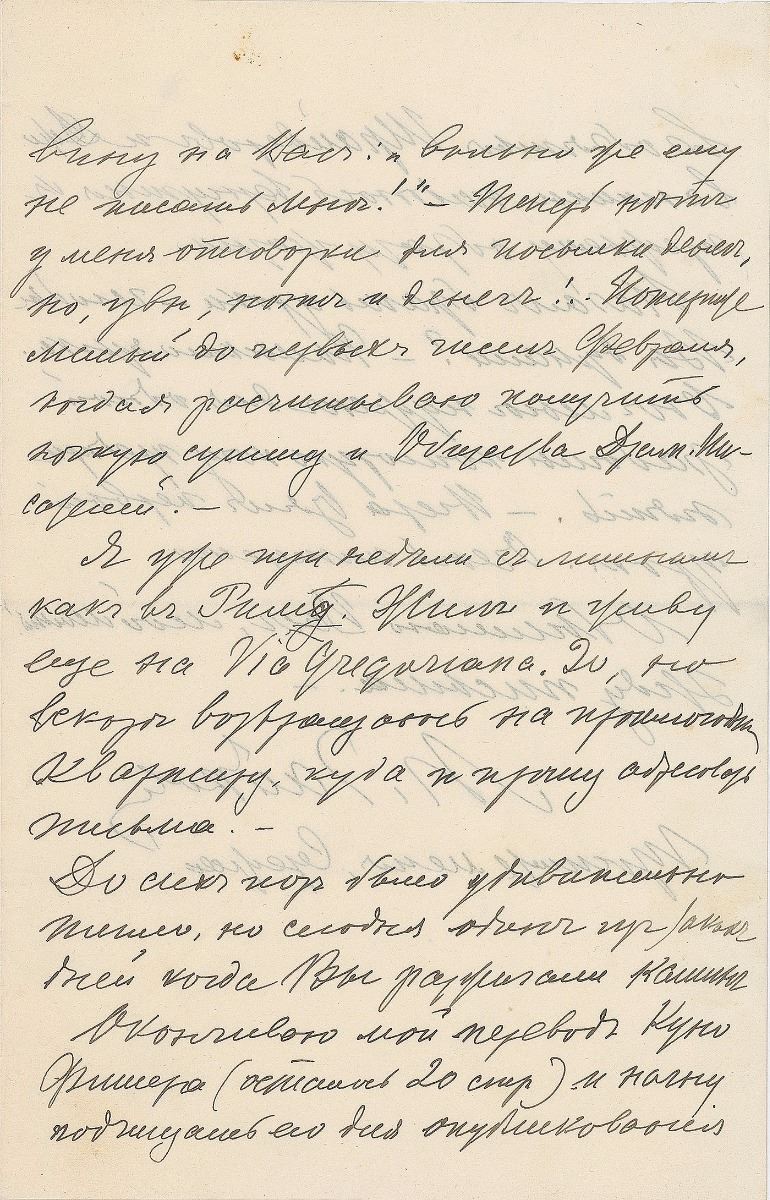 вину на Васъ: „вольно же ему
не писать мнѣ!“ – Теперь нѣтъ
у меня отговорки для посылки денегъ,
но, увы, нѣтъ и денегъ!.. Потерпите
милый до первыхъ чиселъ Февраля,
когда я расчитываю получить
нѣкую сумму и Общества Драм. Пи-
сателей. –
Я уже три недѣли съ лишнимъ
какъ въ Римѣ. Жилъ и живу
еще на Via Gregoriana. 20, но
вскорѣ возвращаюсь на прошлогоднюю
квартиру, куда и прошу адресовать
письма. –
До сихъ поръ было удивительно
тепло, но сегодня одинъ изъ
дней когда Вы разжигали каминъ
Оканчиваю мой переводъ Куно
Фишера (осталось 20 стр) и начну
подчищать его для опубликованія